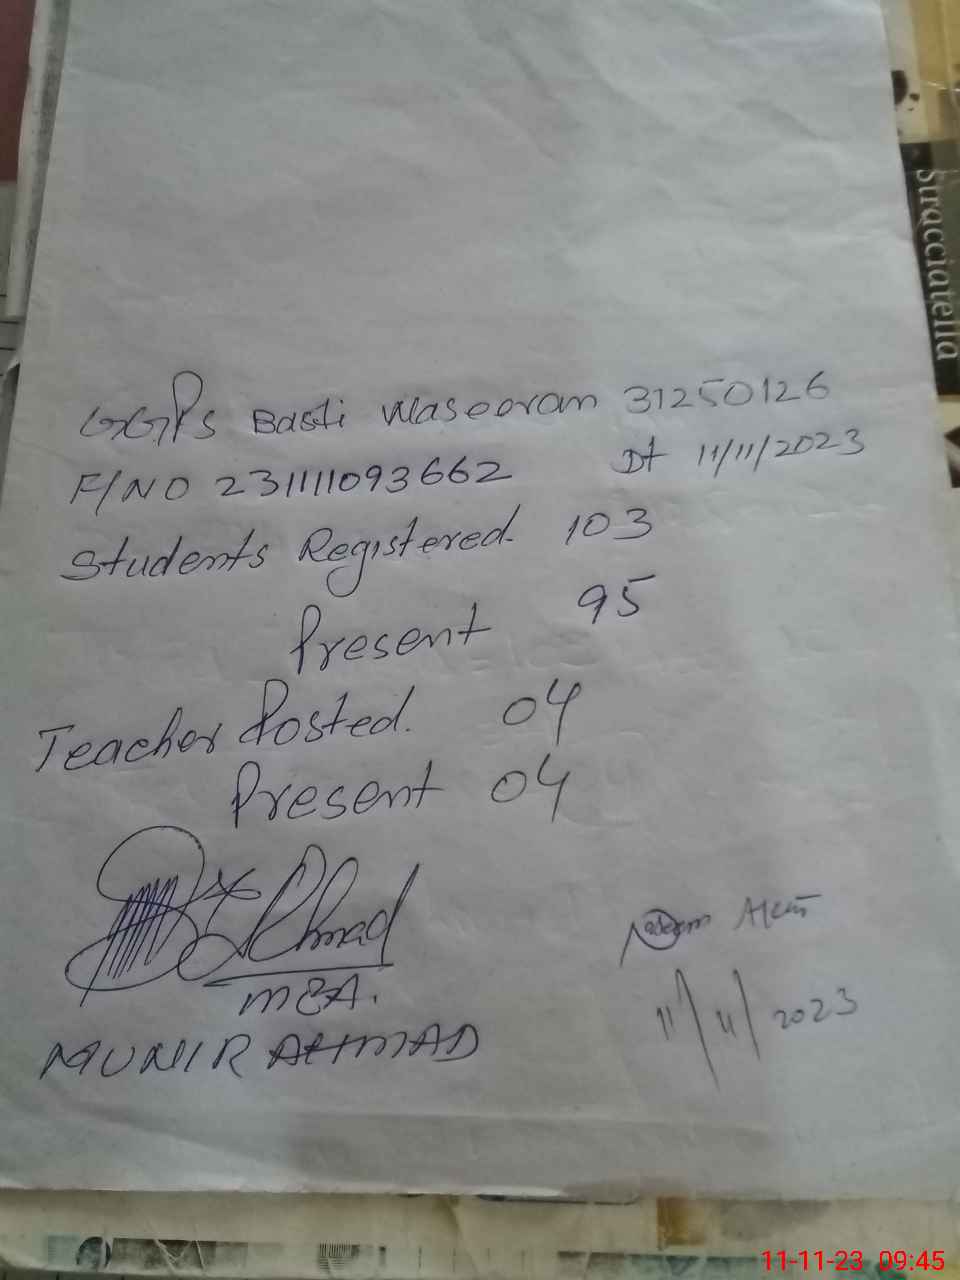 GGPS Basti Waseeran 31250126
F/NO 231111093662 Dt 11/11/2023
Students Registered. 103
Present 95
Teacher Posted. 04
Present 04
Ahmad
MEA.
MUNIR AHMAD
11/11/2023
Stracciatella
11-11-23 09:45